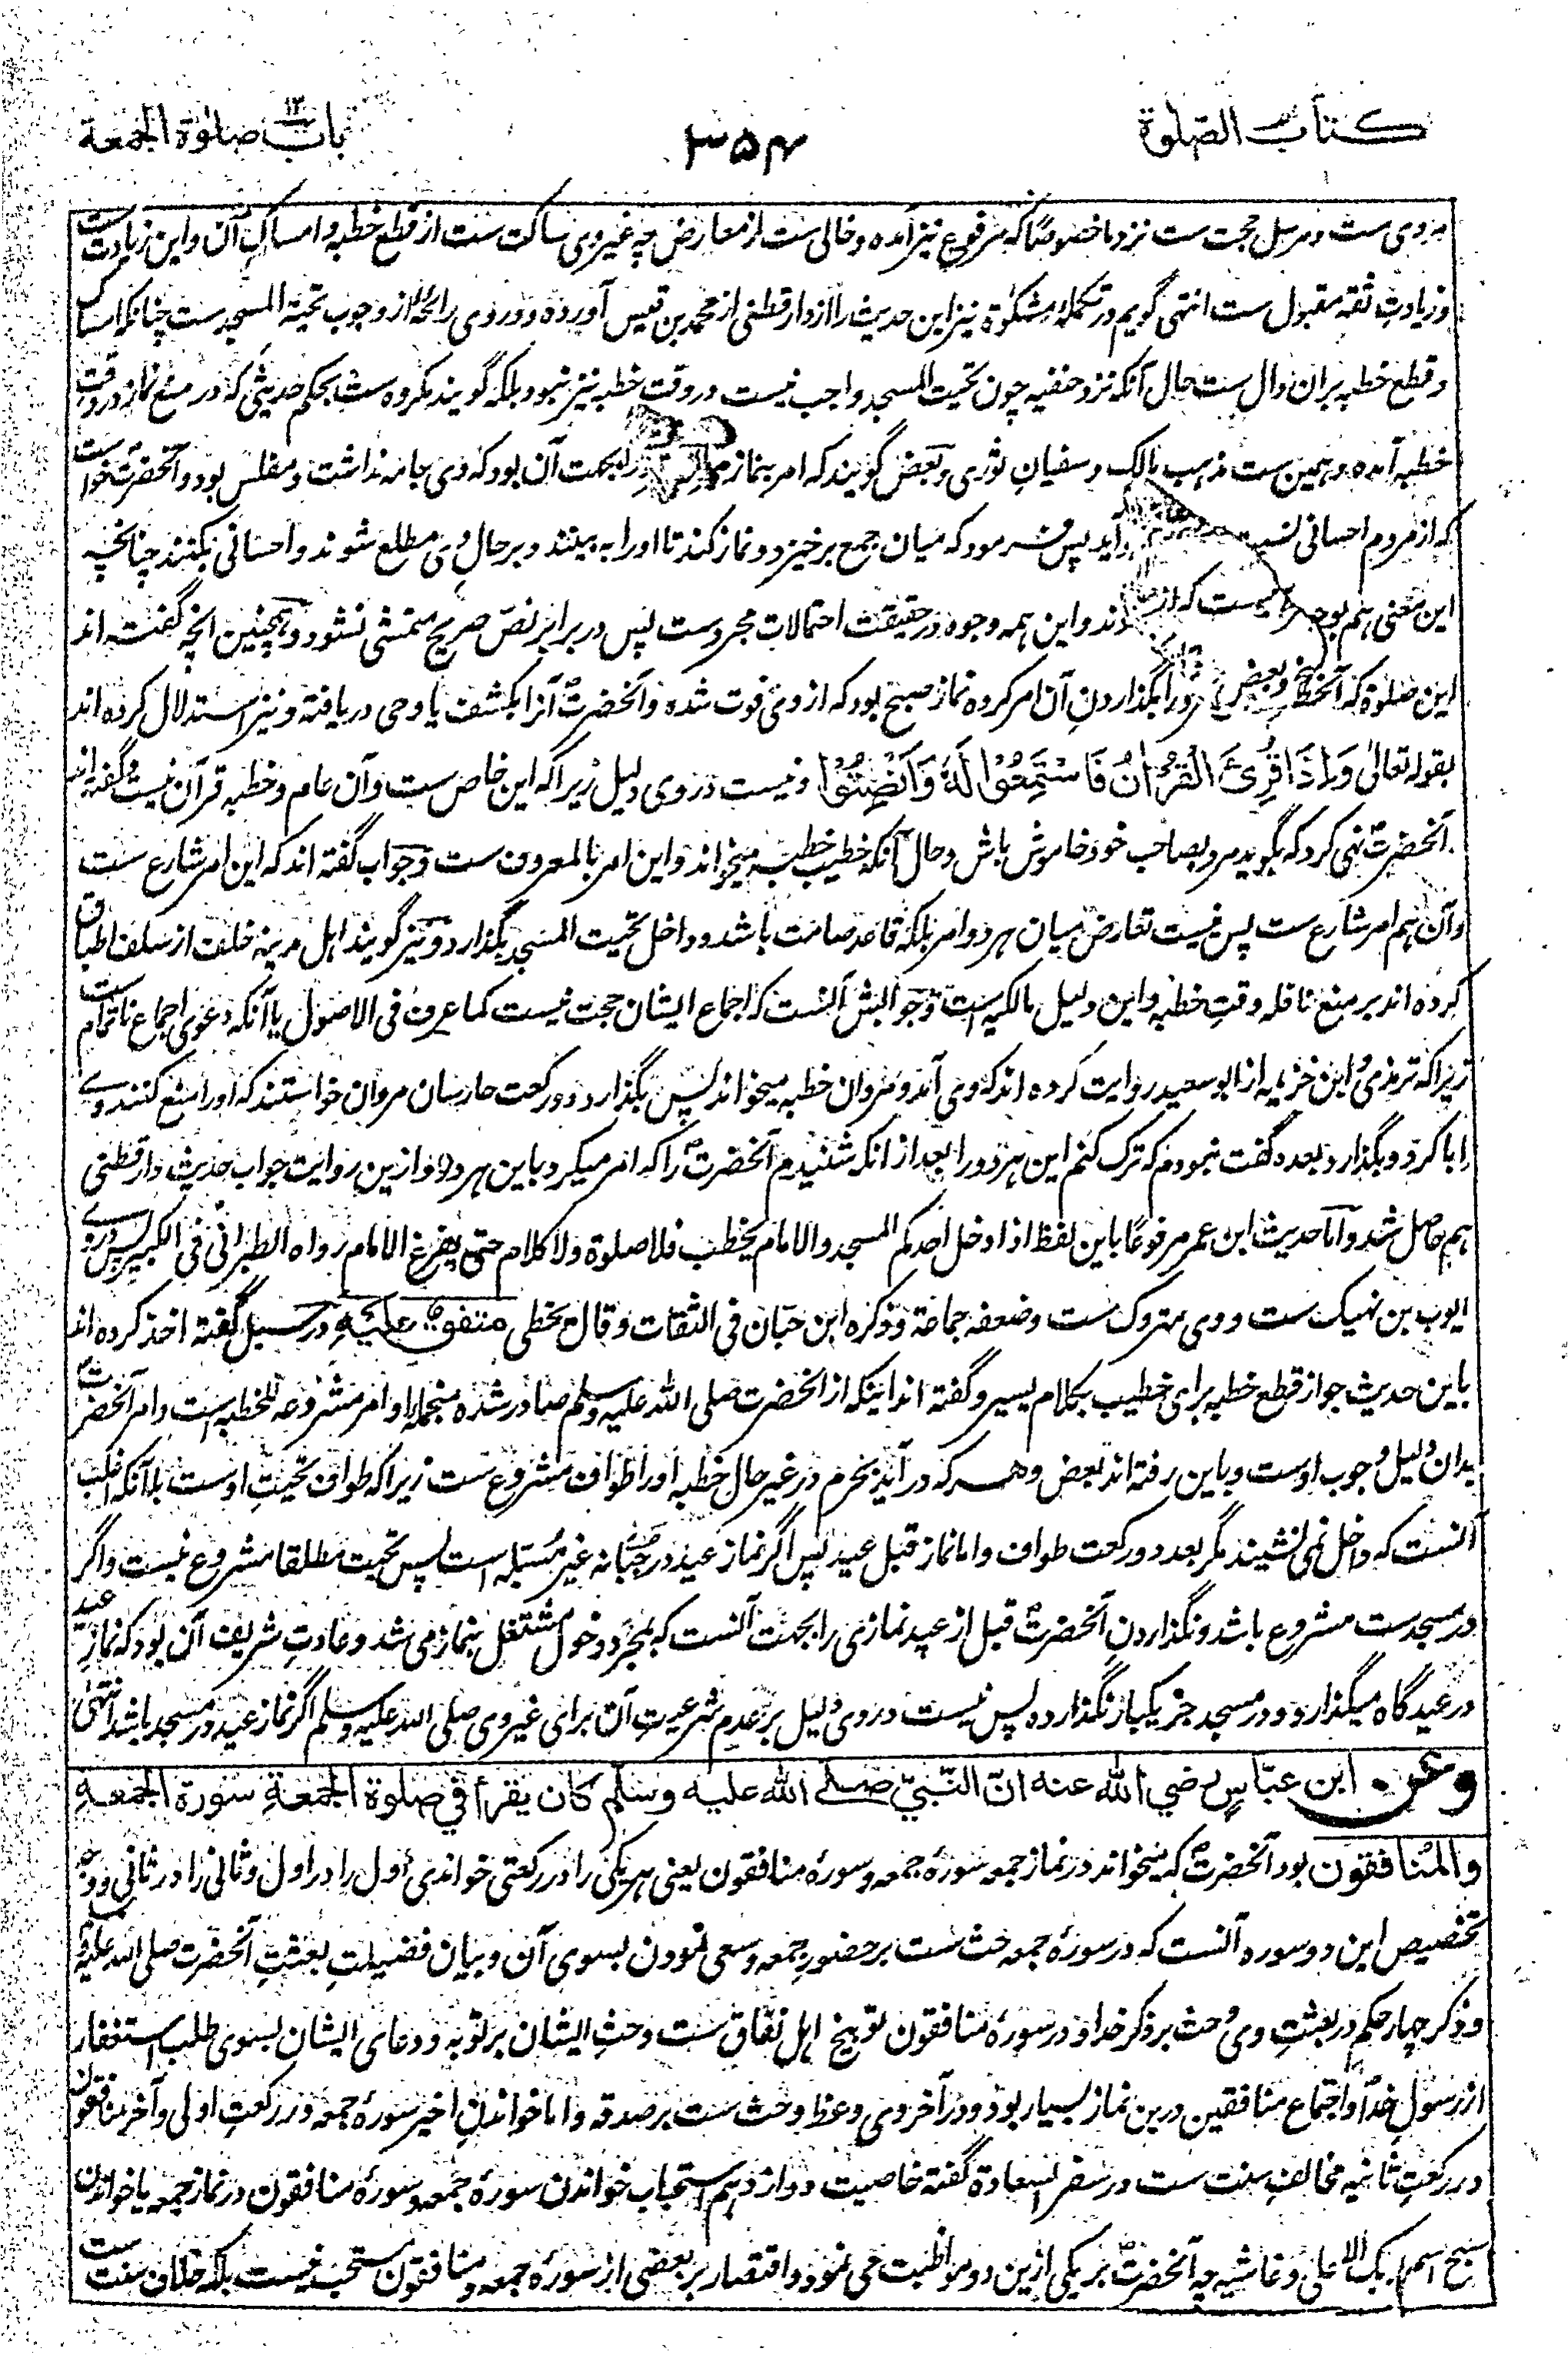 کتاب الصلوة
۳۵۴
باب صلوة الجمعة
مروی ست و مرسل حجت ست نزد ما خصوصًا که مرفوع نیز آمده و خالی ست از معارض چه غیر وی ساکت ست از قطع خطبه و امساک آن و این زیادت ست
و زیادتِ ثقه مقبول ست انتهی گویم در تکملهٔ مشکوٰة نیز این حدیث را از دارقطنی از محمد بن قیس آورده و در وی رائحهٔ از وجوب تحیة المسجد ست چنانکه امساک
و قطع خطبه بران دال ست حال آنکه نزد حنفیه چون تحیت المسجد واجب نیست در وقت خطبه نیز نبود بلکه گویند مکروه ست بحکم حدیثی که در منع نماز در وقتِ
خطبه آمده و همین ست مذهب مالک و سفیان ثوری و بعض گویند که امر بنماز را بجهت آن بود که وی جامه نداشت و مفلس بود و آنحضرتؐ خواست
که از مردم احسانی نسبت آید پس فرمود که میان جمع برخیزد و نماز کند تا او را به بینند و بر حال وی مطلع شوند و احسانی بکنند چنانچه
این معنی هم بوجهـ ست که از وند و این همه وجوه در حقیقت احتمالات مجرد ست پس در برابر نصّ صریح متمشی نشود و همچنین انچه گفته اند
این صلوة که آنحضرتؐ را بگذاردنِ آن امر کرده نماز صبح بود که از وی فوت شده و آنحضرتؐ آنرا بکشف یا وحی دریافته و نیز استدلال کرده اند
بقوله تعالیٰ وَاِذَا قُرِئَ الْقُرْاٰنُ فَاسْتَمِعُوْا لَهٗ وَاَنْصِتُوْا و نیست در وی دلیل زیرا که این خاص ست و آن عام و خطبه قرآن نیست و گفته اند
آنحضرتؐ نهی کرد که بگوید مرد بصاحب خود خاموش باش و حال آنکه خطیب خطبه میخواند و این امر بالمعروف ست و جواب گفته اند که این امر شارع ست
و آن هم امر شارع ست پس نیست تعارض میان هر دو امر بلکه قاعد صامت باشد و داخل تحیت المسجد بگذارد و نیز گویند اهل مدینه خلف از سلف اطباق
کرده اند بر منع نافله وقتِ خطبه و این دلیل مالکیه است و جوابش آنست که اجماع ایشان حجت نیست کما عرف فی الاصول یا آنکه دعوی اجماع ناتمام ست
زیرا که ترمذی و ابن خزیمه از ابو سعید روایت کرده اند که وی آمد و مروان خطبه میخواند پس بگذارد دو رکعت حارسان مروان خواستند که او را منع کنند وے
ابا کرد و بگذارد بعده گفت نبودم که ترک کنم این هر دو را بعد از انکه شنیدم آنحضرتؐ را که امر میکرد باین هر دو و ازین روایت جواب حدیث دارقطنی
هم حاصل شد و امّا حدیث ابن عمر مرفوعًا باین لفظ اذا دخل احدکم المسجد والامام یخطب فلا صلوة ولا کلام حتی یفرغ الامام رواه الطبرانی فی الکبیر پس در وے
ایوب بن نهیک ست و وی متروک ست وضعفه جماعة وذکره ابن حبّان فی الثقات وقال یخطی متفق علیه در سبل گفته اخذ کرده اند
باین حدیث جواز قطع خطبه برای خطیب بکلام یسیر و گفته اند اینکه از آنحضرت صلی الله علیه وسلم صادر شده منجملهٔ اوامر مشروعه للخطبه است و امر آنحضرتؐ
بدان دلیل وجوب اوست و باین رفته اند بعض و هر که در آید بحرم در غیر حال خطبه او را طواف مشروع ست زیرا که طواف تحیتِ اوست یا آنکه اغلب
آنست که داخل نمی نشیند مگر بعد دو رکعت طواف و اما نماز قبل عید پس اگر نماز عید در جبّانه غیر مسبّله است پس تحیت مطلقا مشروع نیست و اگر
در مسجد ست مشروع باشد و نگذاردنِ آنحضرتؐ قبل از عید نمازی را بجهت آنست که بمجرد دخول مشتغل بنماز می شد و عادت شریف آن بود که نماز عید
در عیدگاه میگذارد و در مسجد جز یکبار نگذارده پس نیست در وی دلیل بر عدم شرعیتِ آن برای غیر وی صلی الله علیه وسلم اگر نماز عید در مسجد باشد انتهیٰ
وعن ابن عبّاس رضي الله عنه انّ النّبيّ صلے الله عليه وسلم كان يقرأ في صلوة الجمعة سورة الجمعة
والمنافقون بود آنحضرتؐ که میخواند در نماز جمعه سورهٔ جمعه و سورهٔ منافقون یعنی هر یکی را در رکعتی خواندی اول را در اول و ثانی را در ثانی و وجه
تخصیص این دو سوره آنست که در سورهٔ جمعه حث ست بر حضور جمعه و سعی نمودن بسوی آن و بیان فضیلتِ بعثتِ آنحضرت صلی الله علیه و
و ذکر چهار حکم در بعثتِ وی و حث بر ذکر خدا و در سورهٔ منافقون توبیخ اهل نفاق ست و حثِ ایشان بر توبه و دعای ایشان بسوی طلب استغفار
از رسول خدا و اجتماع منافقین درین نماز بسیار بود و در آخر وی وعظ و حث ست بر صدقه و اما خواندنِ اخیر سورهٔ جمعه در رکعتِ اولی و آخر منافقون
در رکعتِ ثانیه مخالفِ سنت ست در سفر السعادة گفته خاصیت دوازدهم استحباب خواندن سورهٔ جمعه و سورهٔ منافقون در نماز جمعه یا خواندن
سبح اسم ربک الاعلیٰ و غاشیه چه آنحضرتؐ بر یکی ازین دو مواظبت می نمود و اقتصار بر بعضی از سورهٔ جمعه و منافقون مستحب نیست بلکه خلاف سنت ست